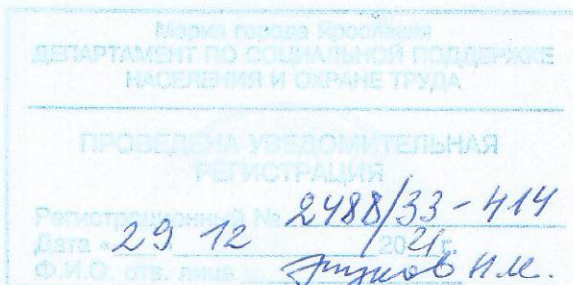 Мэрия города Ярославля
ДЕПАРТАМЕНТ ПО СОЦИАЛЬНОЙ ПОДДЕРЖКЕ
НАСЕЛЕНИЯ И ОХРАНЕ ТРУДА
ПРОВЕДЕНА УВЕДОМИТЕЛЬНАЯ
РЕГИСТРАЦИЯ
Регистрационный № 2488/33-414
Дата «29 12 2021 г.
Ф.И.О. отв. лица Н.М.